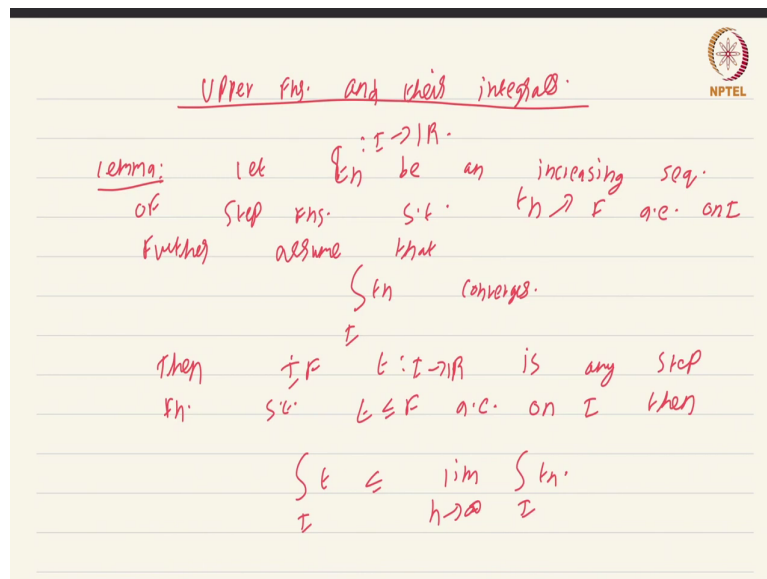 Upper Fns. and their integrals.
NPTEL
: I → IR.
Lemma: let tn be an increasing seq.
OF Step Fns. s.t. tn ↗ F a.e. on I
Further assume that
∫ tn converges.
I
Then iF t : I → IR is any step
Fn. s.t. t ≤ F a.e. on I then
∫ t ≤ lim ∫ tn.
I n→∞ I